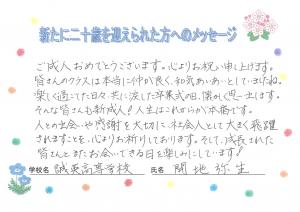 新たに二十歳を迎えられた方へのメッセージ
ご成人おめでとうございます。心よりお祝い申し上げます。
皆さんのクラスは本当に仲が良く、和気あいあいとしていましたね。
楽しく過ごした日々、共に涙した卒業式の日、懐かしく思い出します。
そんな皆さんも新成人！人生はこれからが本番です。
人との出会いや感謝を大切に、社会人として大きく飛躍
されますことを、心よりお祈りしております。そして、成長された
皆さんとまたお会いできる日を楽しみにしています！
学校名 誠英高等学校 氏名 関地弥生